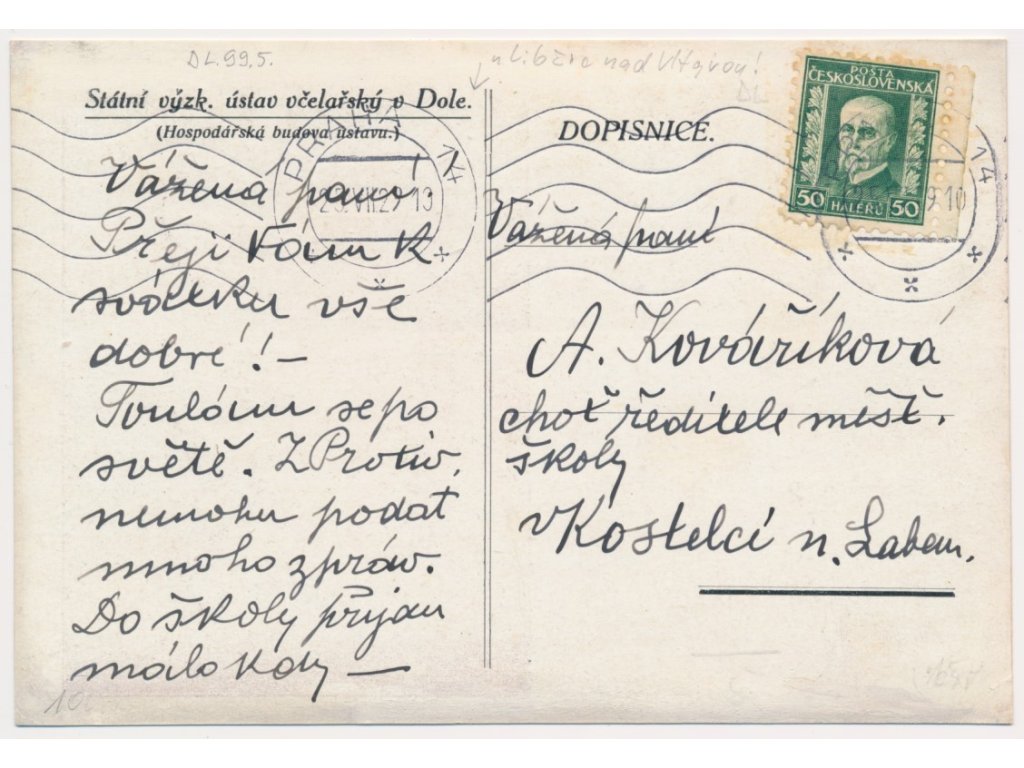 DL.99,5.
u Libčic nad Vltavou!
DL
Státní výzk. ústav včelařský v Dole.
(Hospodářská budova ústavu.)
DOPISNICE.
POŠTA
ČESKOSLOVENSKÁ
50 HALÉŘŮ 50
PRAHA 14
VII 29 13
14
9 10
Vážená paní
Přeji Vám k
svátku vše
dobré! –
Toulám se po
světě. Z Protiv.
nemohu podat
mnoho zpráv.
Do školy přijdu
málokdy –
Vážená paní
A. Kovaříková
choť ředitele měšť.
školy
v Kostelci n. Labem.